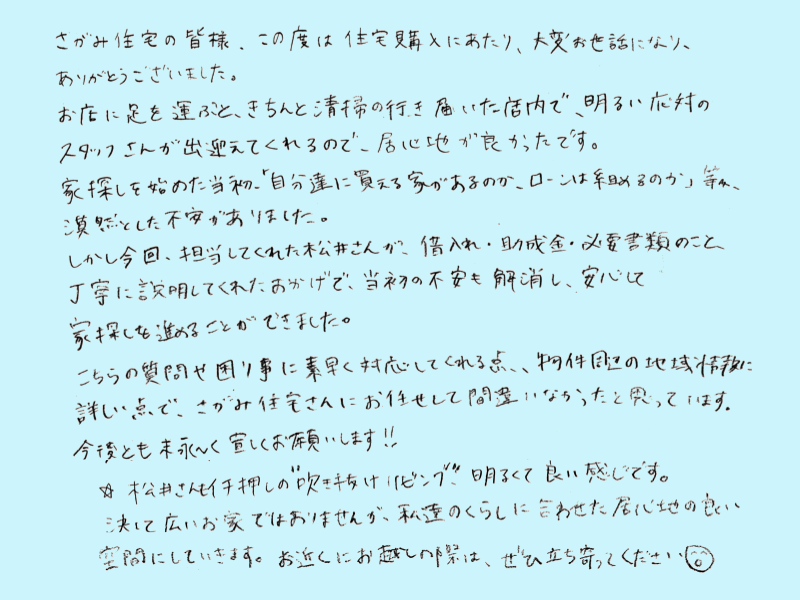 さがみ住宅の皆様、この度は住宅購入にあたり、大変お世話になり、
ありがとうございました。
お店に足を運ぶと、きちんと清掃の行き届いた店内で、明るい応対の
スタッフさんが出迎えてくれるので、居心地が良かったです。
家探しを始めた当初、「自分達に買える家があるのか、ローンは組めるのか」等、
漠然とした不安がありました。
しかし今回、担当してくれた松井さんが、借入れ・助成金・必要書類のこと、
丁寧に説明してくれたおかげで、当初の不安も解消し、安心して
家探しを進めることができました。
こちらの質問や困り事に素早く対応してくれる点、、物件周辺の地域情報に
詳しい点で、さがみ住宅さんにお任せして間違いなかったと思っています。
今後とも末永〜く宜しくお願いします!!
☆ 松井さんもイチ押しの"吹き抜けリビング"、明るくて良い感じです。
決して広いお家ではありませんが、私達のくらしに合わせた居心地の良い
空間にしていきます。お近くにお越しの際は、ぜひ立ち寄ってください